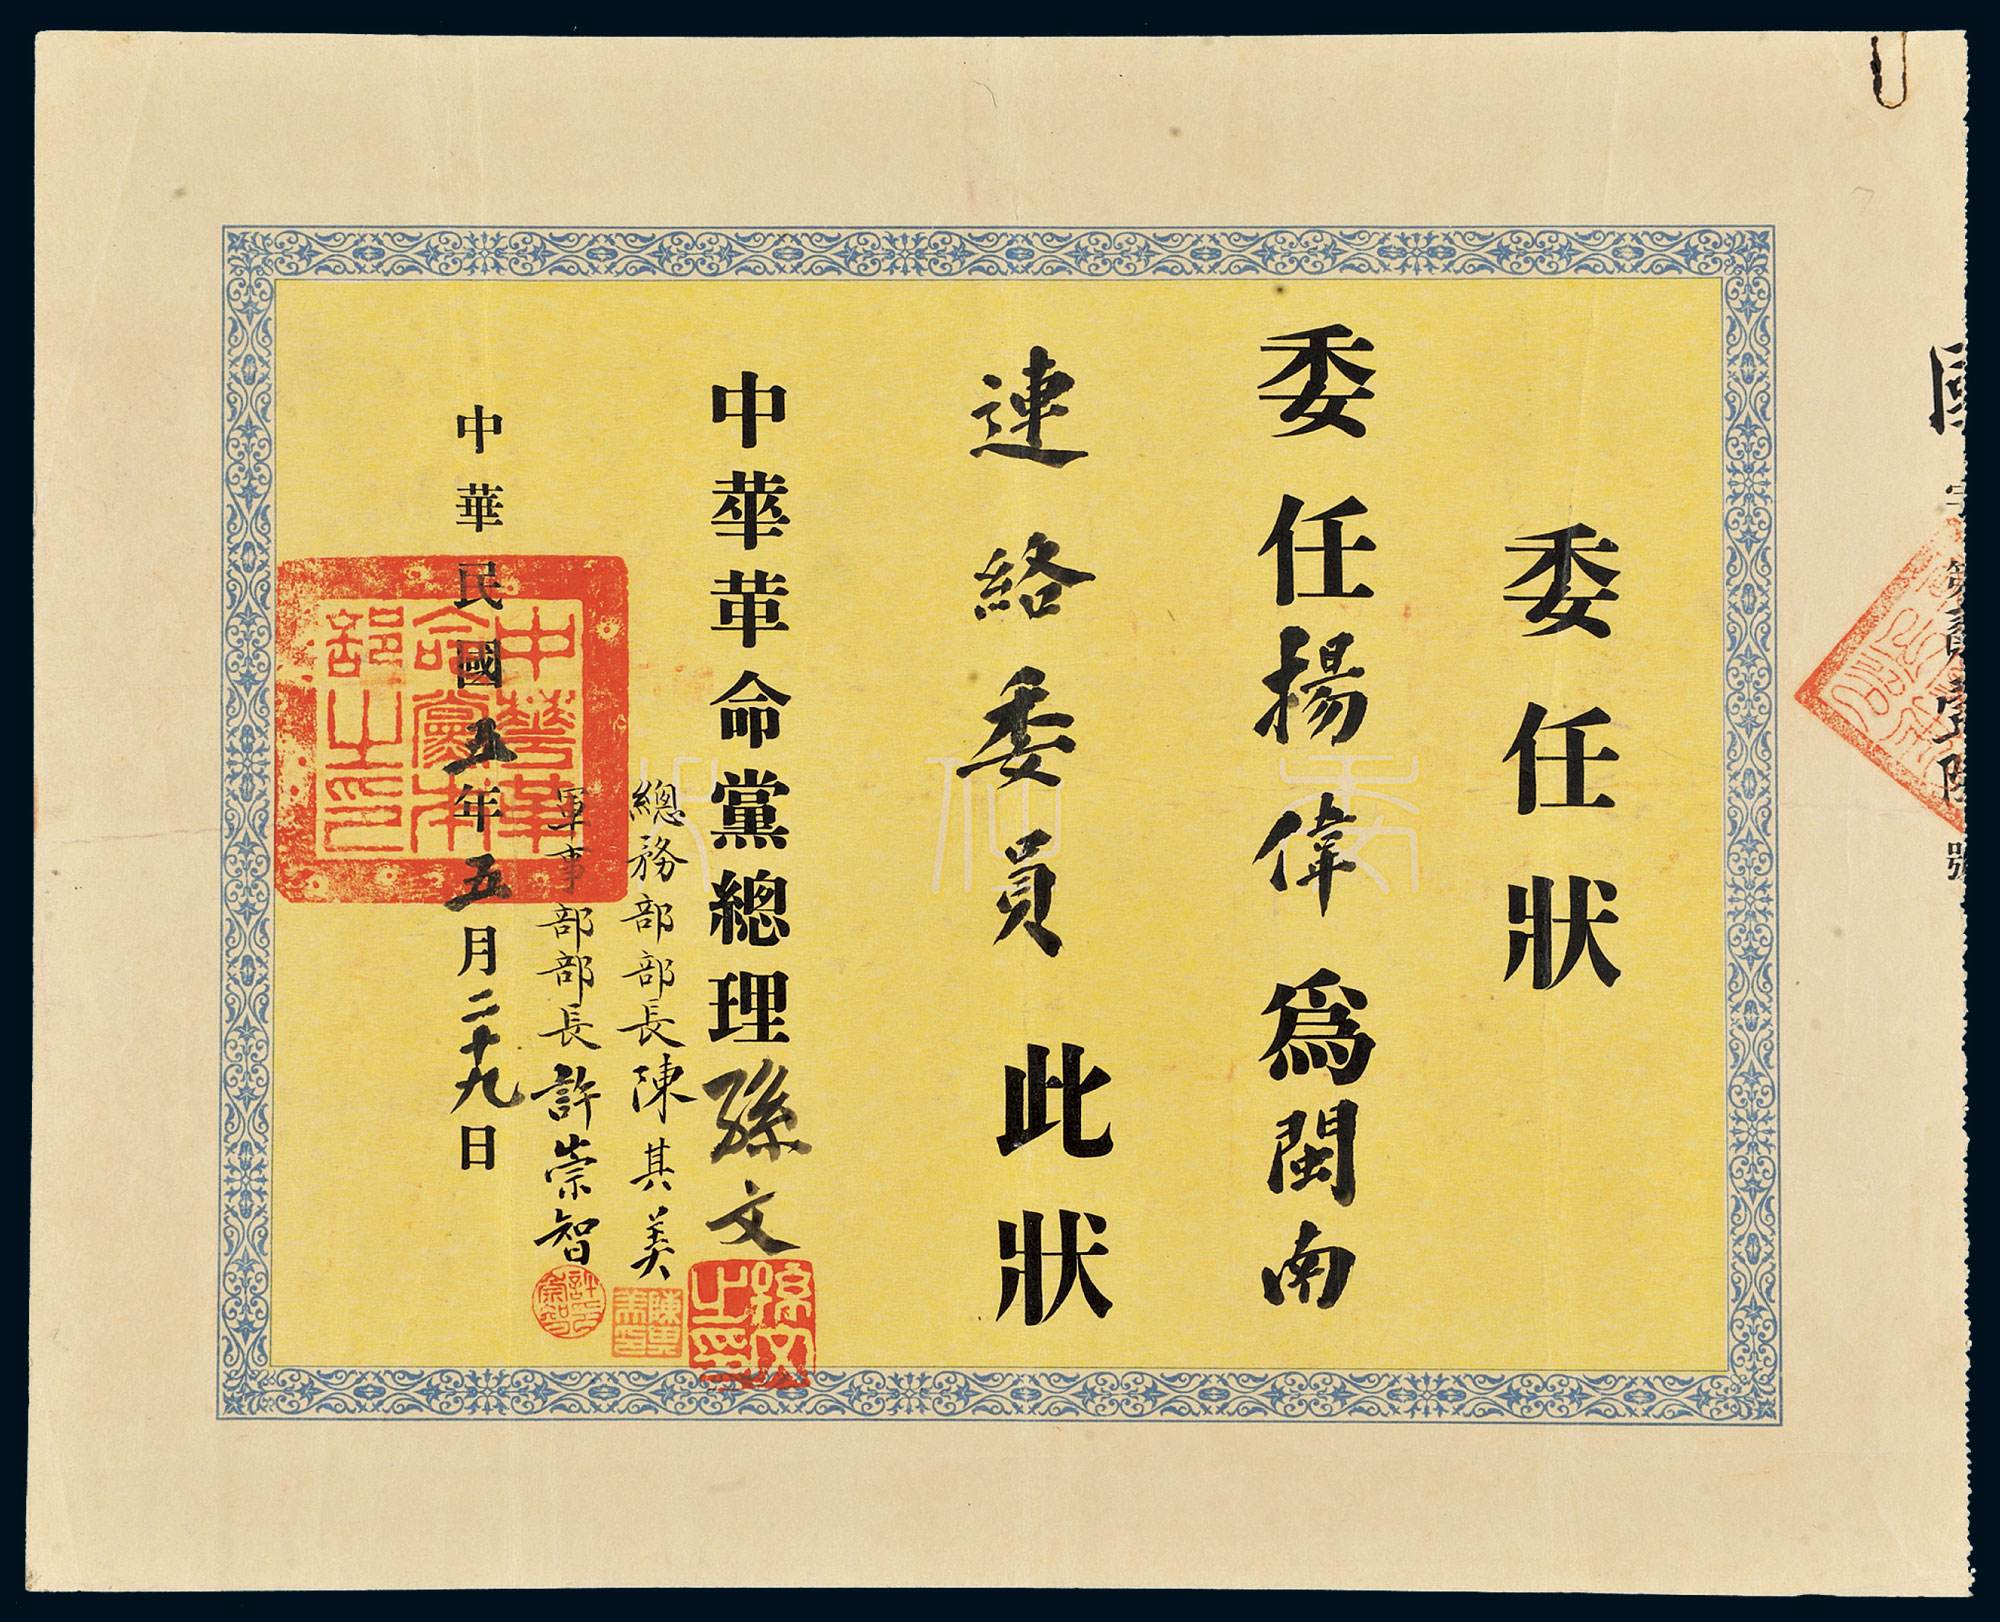 委任狀
委任楊偉爲閩南
連絡委員此狀
中華革命黨總理孫文
總務部部長陳其美
軍事部部長許崇智
中華民國五年五月二十九日
中華革命黨本部之印
孫文之印